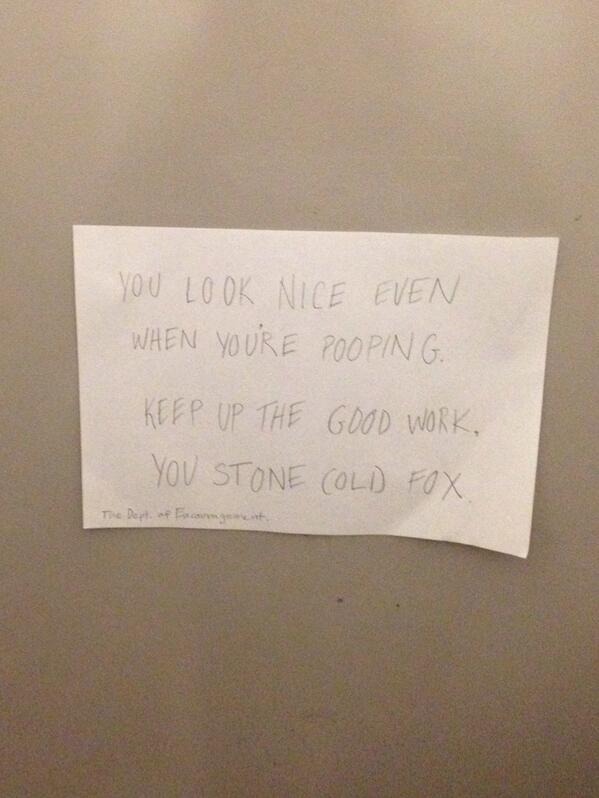 YOU LOOK NICE EVEN
WHEN YOU'RE POOPING.
KEEP UP THE GOOD WORK,
YOU STONE COLD FOX.
The Dept. of Encouragement.